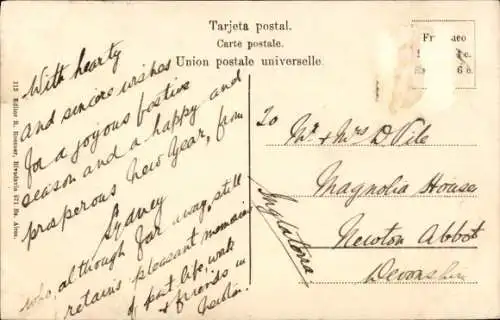 Tarjeta postal.
Carte postale.
Union postale universelle.
With hearty
and sincere wishes
for a joyous festive
season and a happy and
prosperous New Year, from
Sydney
who, although far away, still
retains pleasant memories
of past life, work
& friends in
Newton.
To
Mr. & Mrs D Vile
Magnolia House
Newton Abbot
Devonshire
Inglaterra